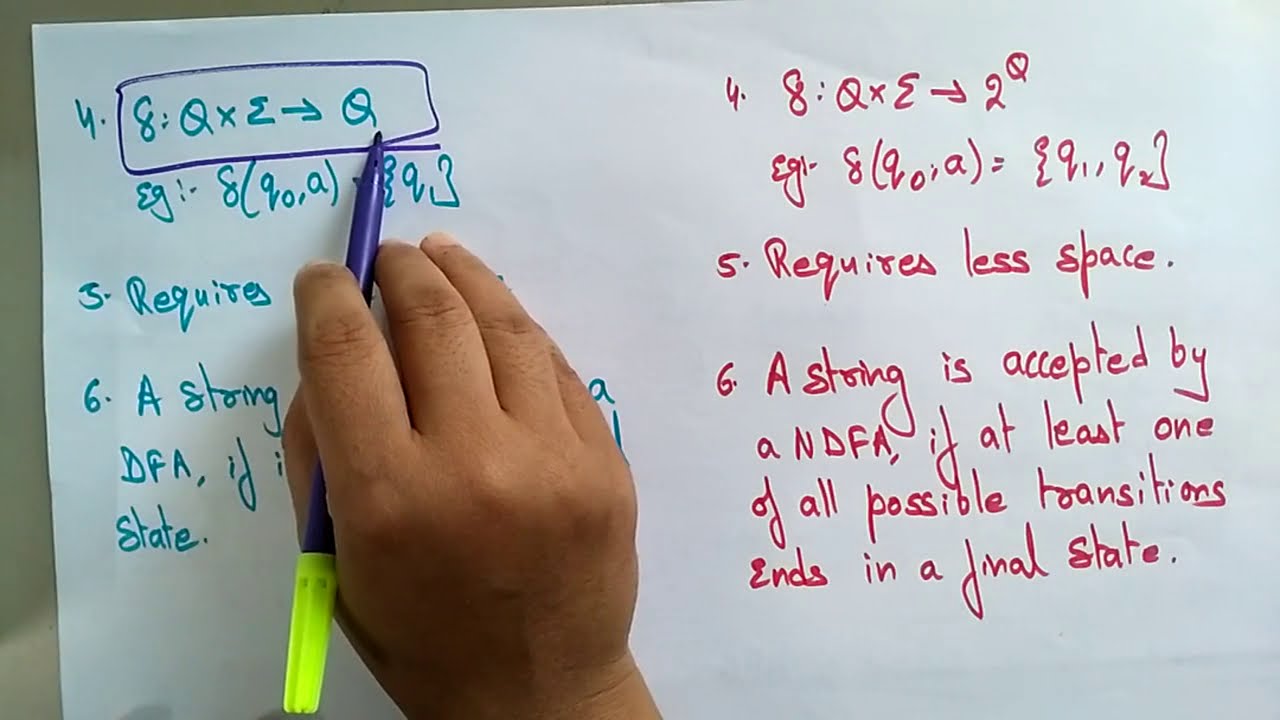 4. δ: Q × Σ → Q
Eg:- δ(q₀, a) = {q₁}
5. Requires
6. A string a
DFA, if
State.
4. δ: Q × Σ → 2^Q
Eg:- δ(q₀, a) = {q₁, q₂}
5. Requires less space.
6. A string is accepted by
a NDFA, if at least one
of all possible transitions
Ends in a final state.